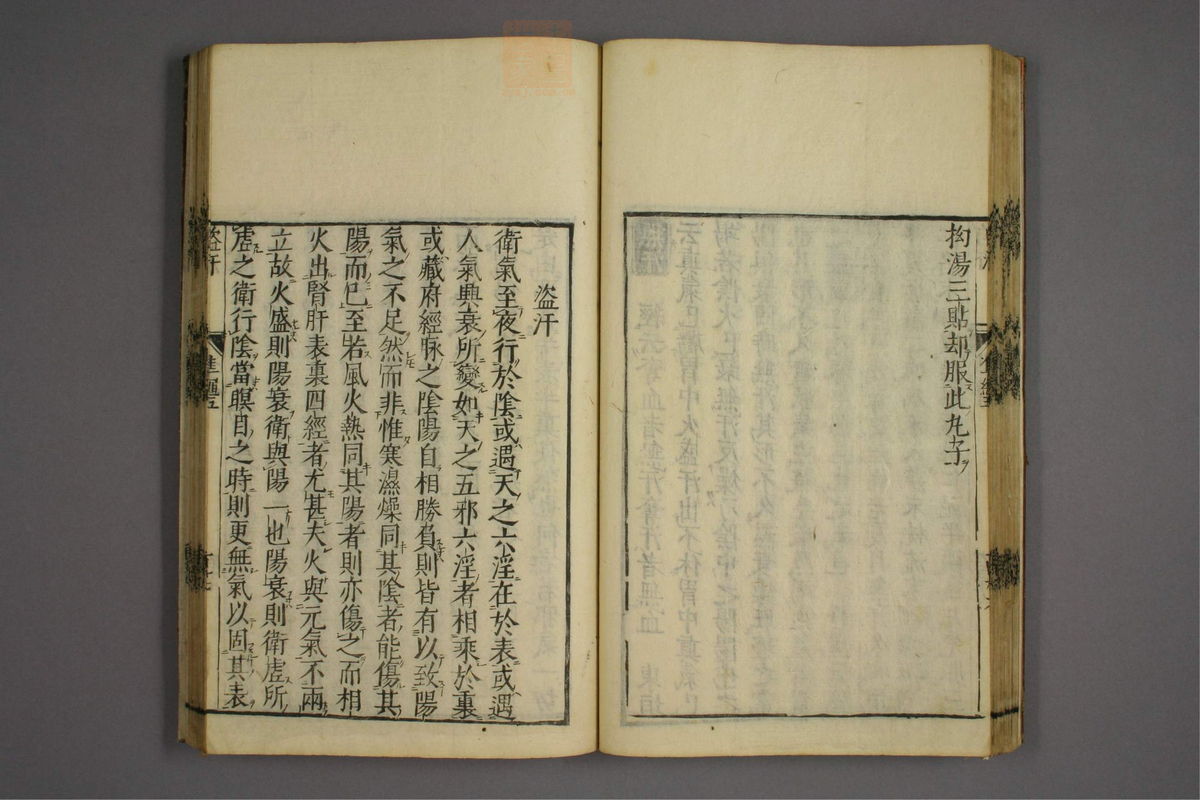 抅湯三貼却服此丸子
盜汗
衛氣至夜行於陰或遇天之六淫在於表或遇
人氣興衰所變如天之五邪六淫者相乘於裏
或藏府經脉之陰陽自相勝負則皆有以致陽
氣之不足然而非惟寒濕燥同其陰者能傷其
陽而已至若風火熱同其陽者則亦傷之而相
火出腎肝表裏四經者尤甚夫火與元氣不兩
立故火盛則陽衰衛與陽一也陽衰則衛虛所
虛之衛行陰當瞑目之時則更無氣以固其表
盜汗